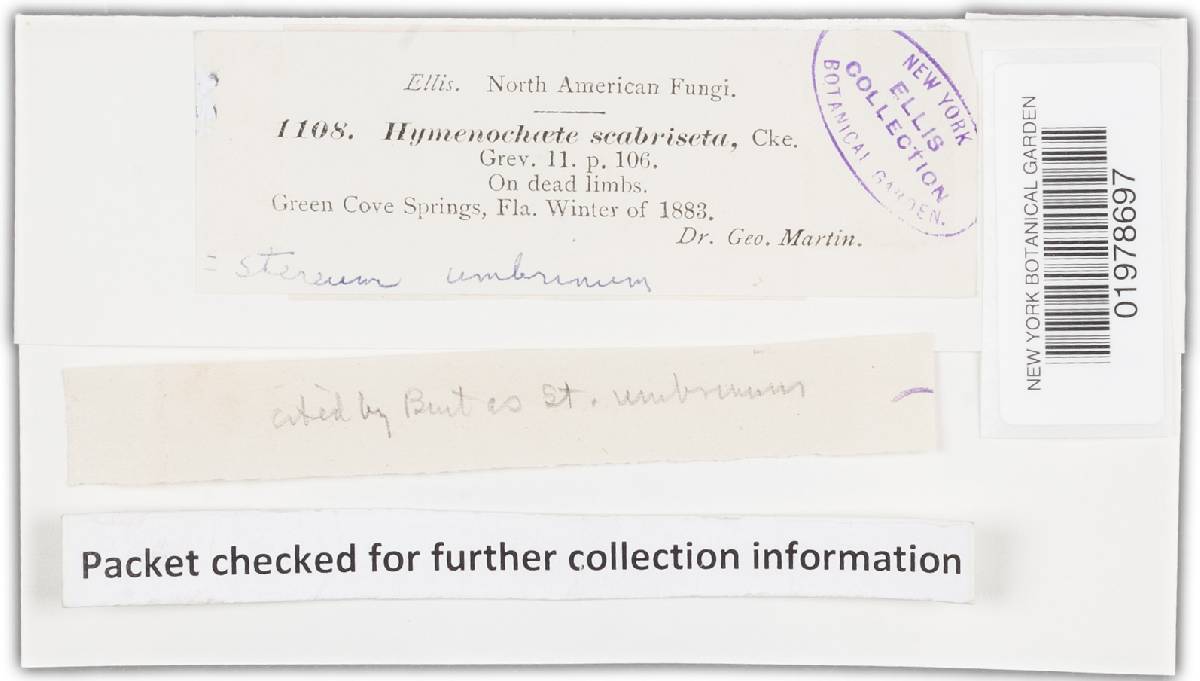 Ellis. North American Fungi.
1108. Hymenochæte scabriseta, Cke.
Grev. 11. p. 106.
On dead limbs.
Green Cove Springs, Fla. Winter of 1883.
Dr. Geo. Martin.
= Stereum umbrinum
NEW YORK
BOTANICAL GARDEN.
ELLIS
COLLECTION
NEW YORK BOTANICAL GARDEN
01978697
cited by Burt as St. umbrinum
Packet checked for further collection information